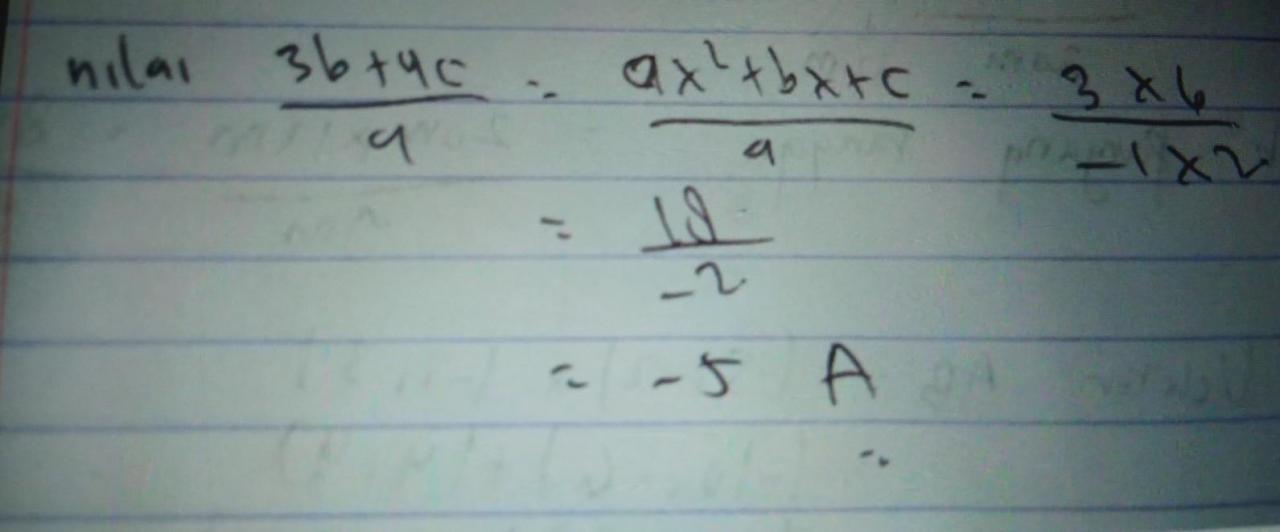 nilai 3b+4c/a = ax²+bx+c/a = 3 x 6/-1 x 2
= 18/-2
= -5 A